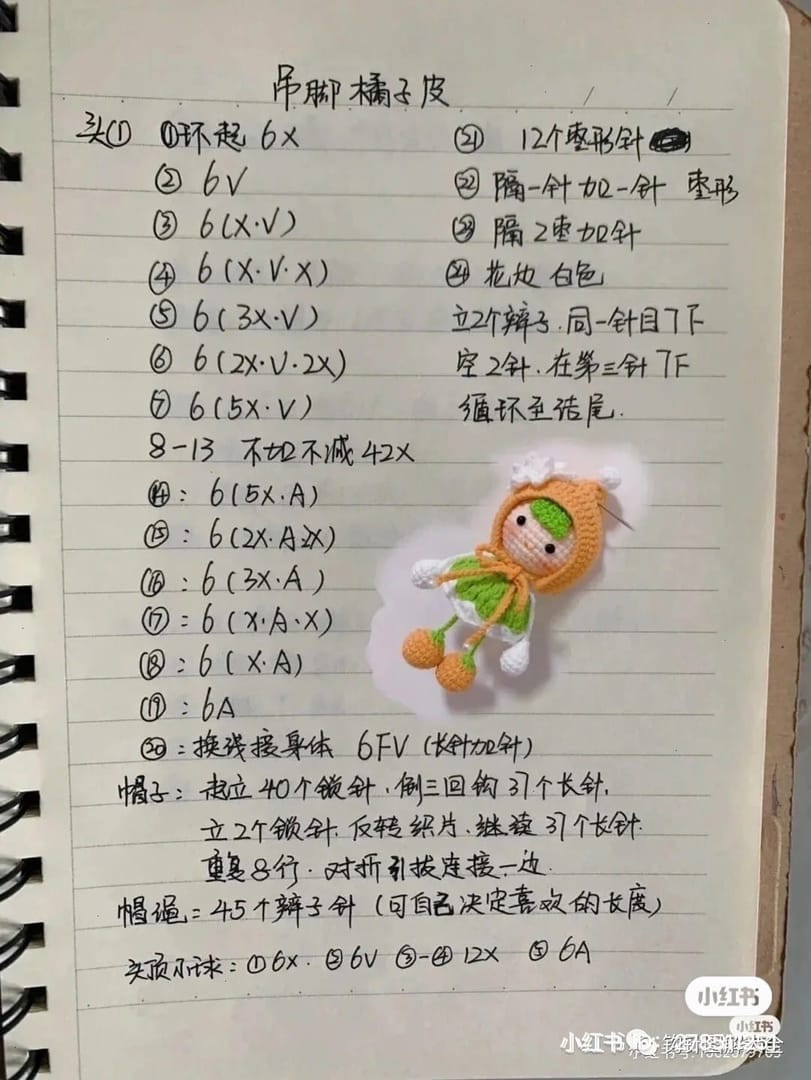 吊脚橘子皮
头① ①环起 6X
② 6V
③ 6(X·V)
④ 6(X·V·X)
⑤ 6(3X·V)
⑥ 6(2X·V·2X)
⑦ 6(5X·V)
8-13 不加不减 42X
⑭: 6(5X·A)
⑮: 6(2X·A·2X)
⑯: 6(3X·A)
⑰: 6(X·A·X)
⑱: 6(X·A)
⑲: 6A
⑳: 换线接身体 6FV (长针加针)
㉑ 12个枣形针
㉒ 隔一针加一针 枣形
㉓ 隔2枣加针
㉔ 花边 白色
立2个辫子.同一针目7F
空2针.在第三针7F
循环至结尾.
帽子: 起立40个锁针.倒三回钩37个长针.
立2个锁针.反转织片.继续37个长针.
重复8行.对折引拔连接一边.
帽绳=45个辫子针 (可自己决定喜欢的长度)
头顶小球:①6X. ②6V ③-④12X ⑤6A
小红书
小红书